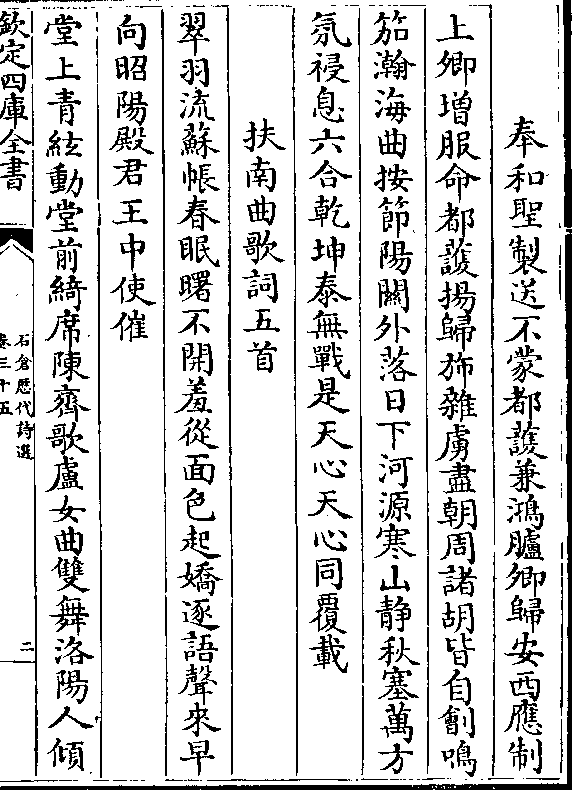 奉和聖製送不蒙都護兼鴻臚卿歸安西應制
上卿增服命都護揚歸斾雜虜盡朝周諸胡皆自鄶鳴
笳瀚海曲按節陽關外落日下河源寒山靜秋塞萬方
氛祲息六合乾坤泰無戰是天心天心同覆載
扶南曲歌詞五首
翠羽流蘇帳春眠曙不開羞從面色起嬌逐語聲來早
向昭陽殿君王中使催
堂上青絃動堂前綺席陳齊歌盧女曲雙舞洛陽人傾
欽定四庫全書
石倉歷代詩選
卷三十五
二